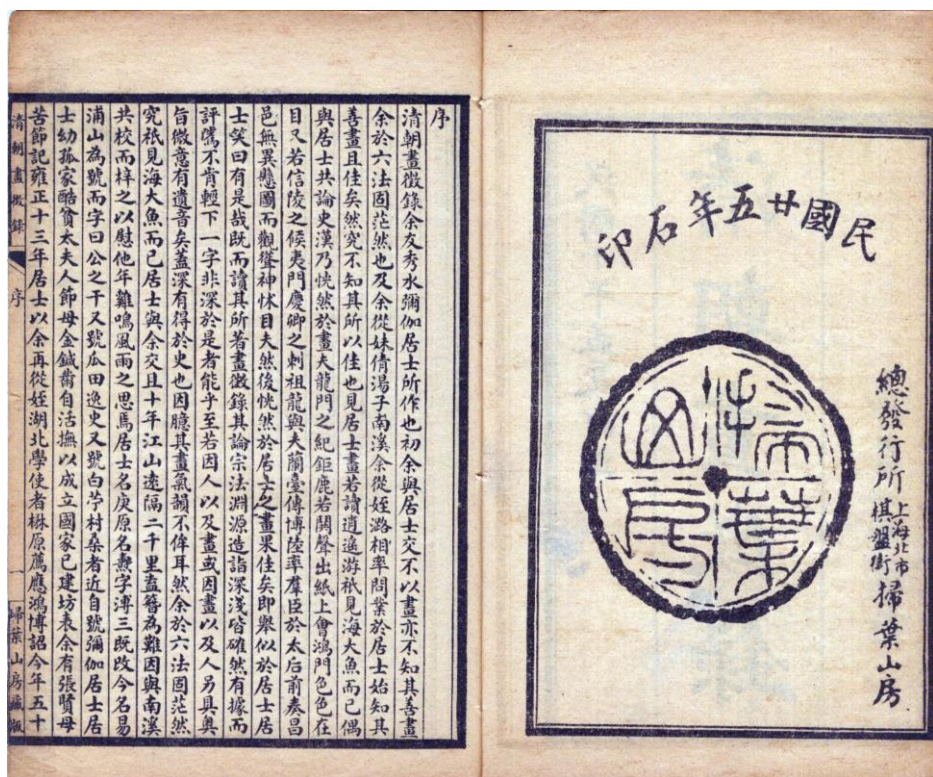 民國廿五年石印
掃葉山房
總發行所 上海北市棋盤街 掃葉山房
序
清朝畫徵錄余友秀水彌伽居士所作也初余與居士交不以畫亦不知其善畫
余於六法固茫然也及余從妹倩湯子南溪余從姪潞相率問業於居士始知其
善畫且佳矣然究不知其所以佳也見居士畫若讀逍遙游祇見海大魚而已偶
與居士共論史漢乃恍然於畫夫龍門之紀鉅鹿若鬭聲出紙上會鴻門色色在
目又若信陵之候夷門慶卿之刺祖龍與夫蘭臺傳博陸率羣臣於太后前奏昌
邑無異懸圖而觀聳神怵目夫然後恍然於居士之畫果佳矣即舉似於居士居
士笑曰有是哉既而讀其所著畫徵錄其論宗法淵源造詣深淺皆確然有據而
評騭不肯輕下一字非深於是者能乎至若因人以及畫或因畫以及人另具奥
旨微意有遺音矣蓋深有得於史也因臆其畫氣韻不侔耳然余於六法固茫然
究祇見海大魚而已居士與余交且十年江山遠隔二千里盍簪為難因與南溪
共校而梓之以慰他年雞鳴風雨之思焉居士名庚原名燾字溥三既改今名易
浦山為號而字曰公之干又號瓜田逸史又號白苧村桑者近自號彌伽居士居
士幼孤家酷貧太夫人節母金鍼黹自活撫以成立國家已建坊表余有張賢母
苦節記雍正十三年居士以余再從姪湖北學使者楙原薦應鴻博詔今年五十
清朝畫徵錄 序 一 掃葉山房藏版